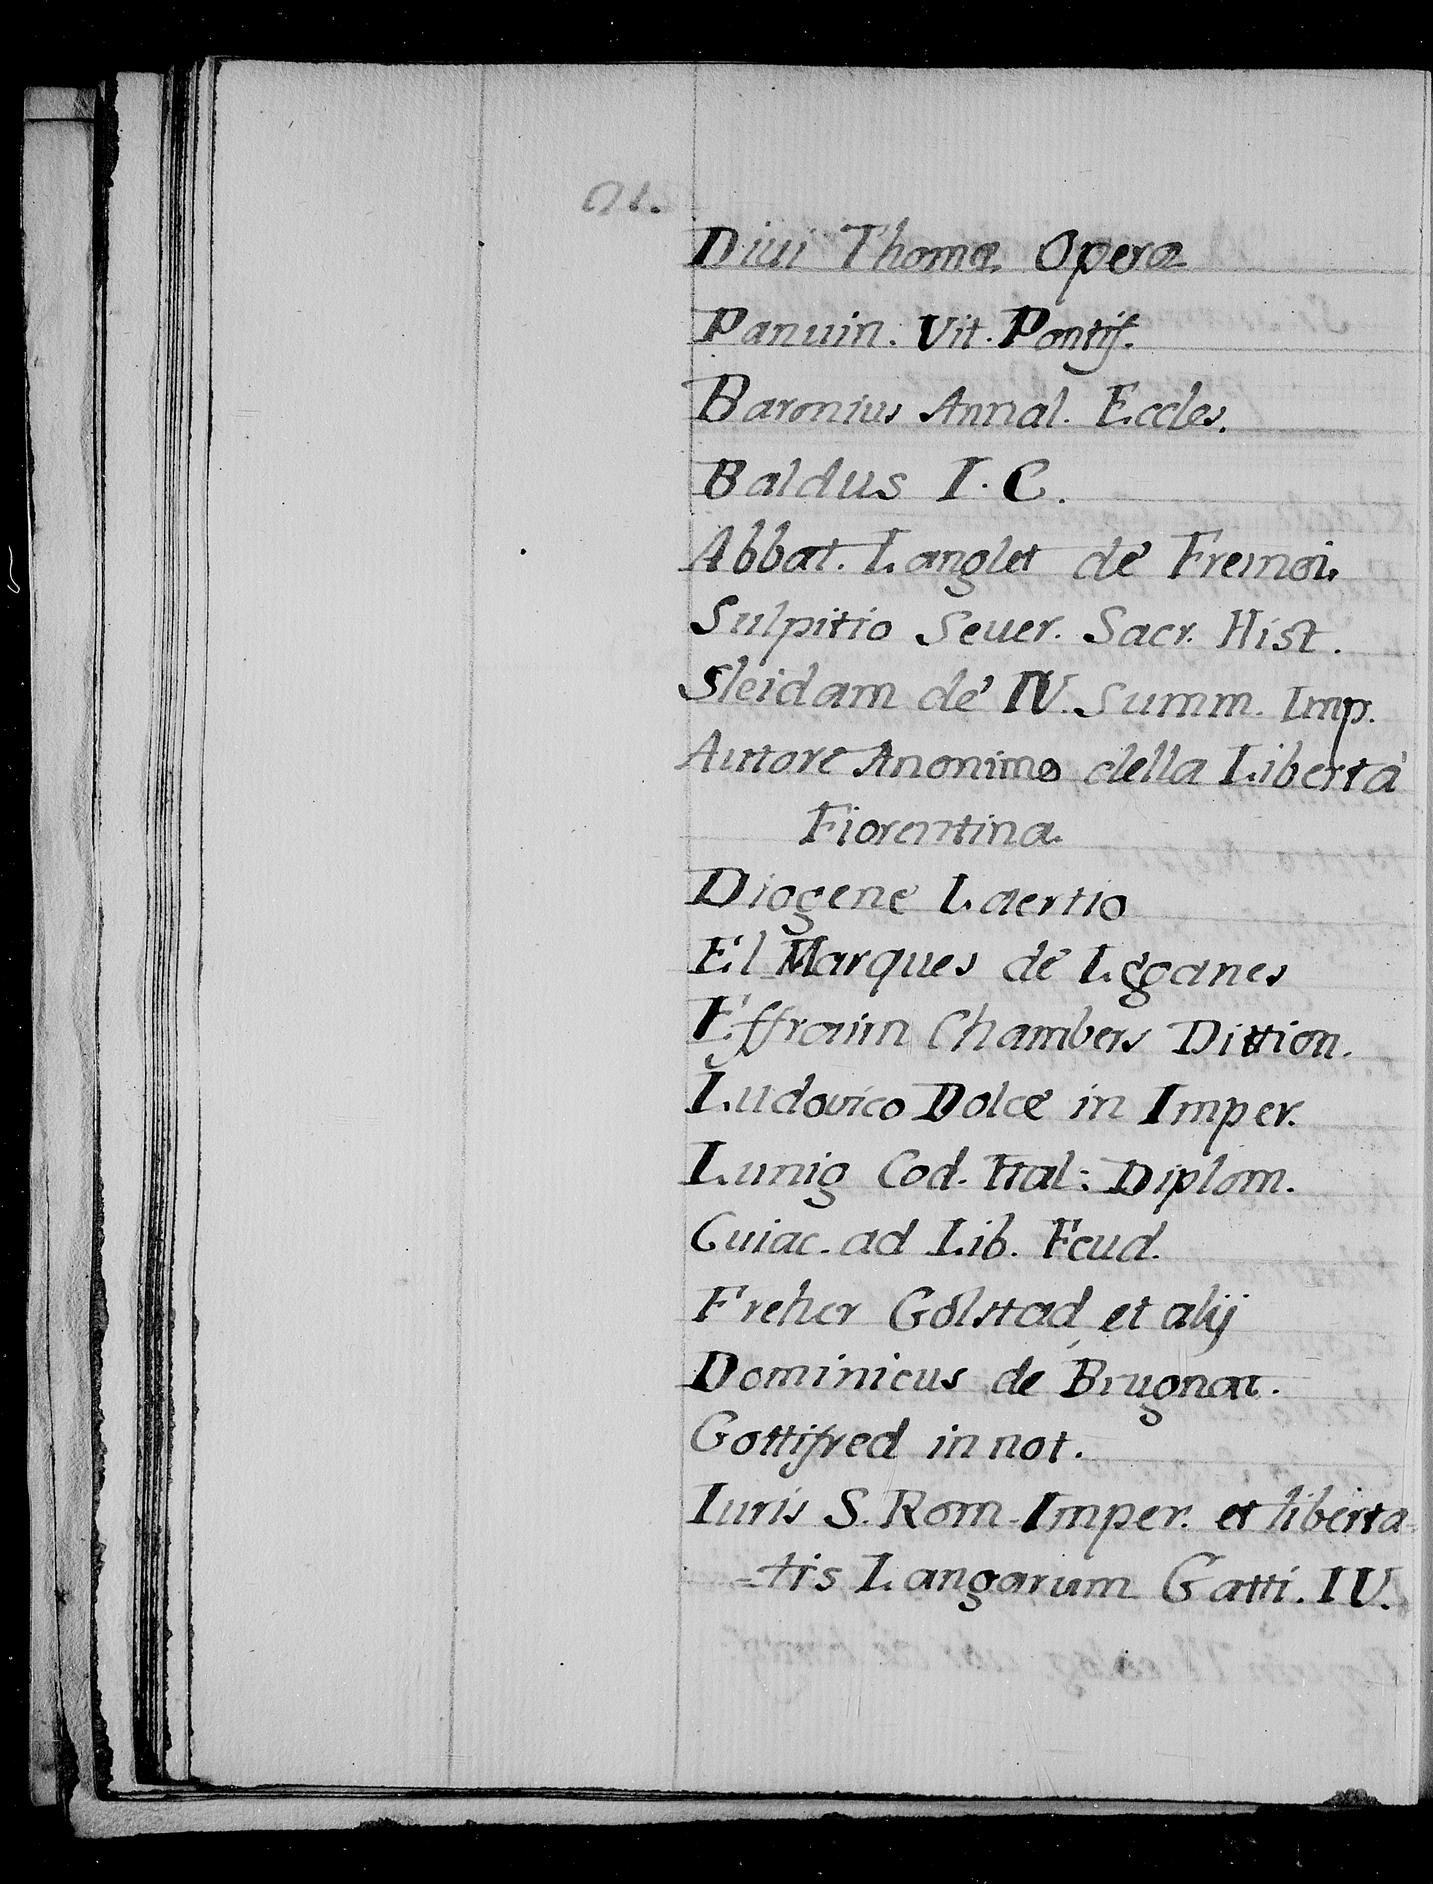 Diui Thomæ Opera
Panuin. Vit. Pontif.
Baronius Annal. Eccles.
Baldus I. C.
Abbat. Langlet de Fremoi.
Sulpitio Seuer. Sacr. Hist.
Sleidam de IV. Summ. Imp.
Autore Anonimo della Libertà
Fiorentina.
Diogene Laertio
El Marques de Leganes
Effraim Chambers Dittion.
Ludovico Dolce in Imper.
Lunig Cod. Ital: Diplom.
Cuiac. ad Lib. Feud.
Freher Golstad, et alij
Dominicus de Brugnat.
Gottifred in not.
Iuris S. Rom. Imper. et liberta=
=tis Langarum Gatti. IV.